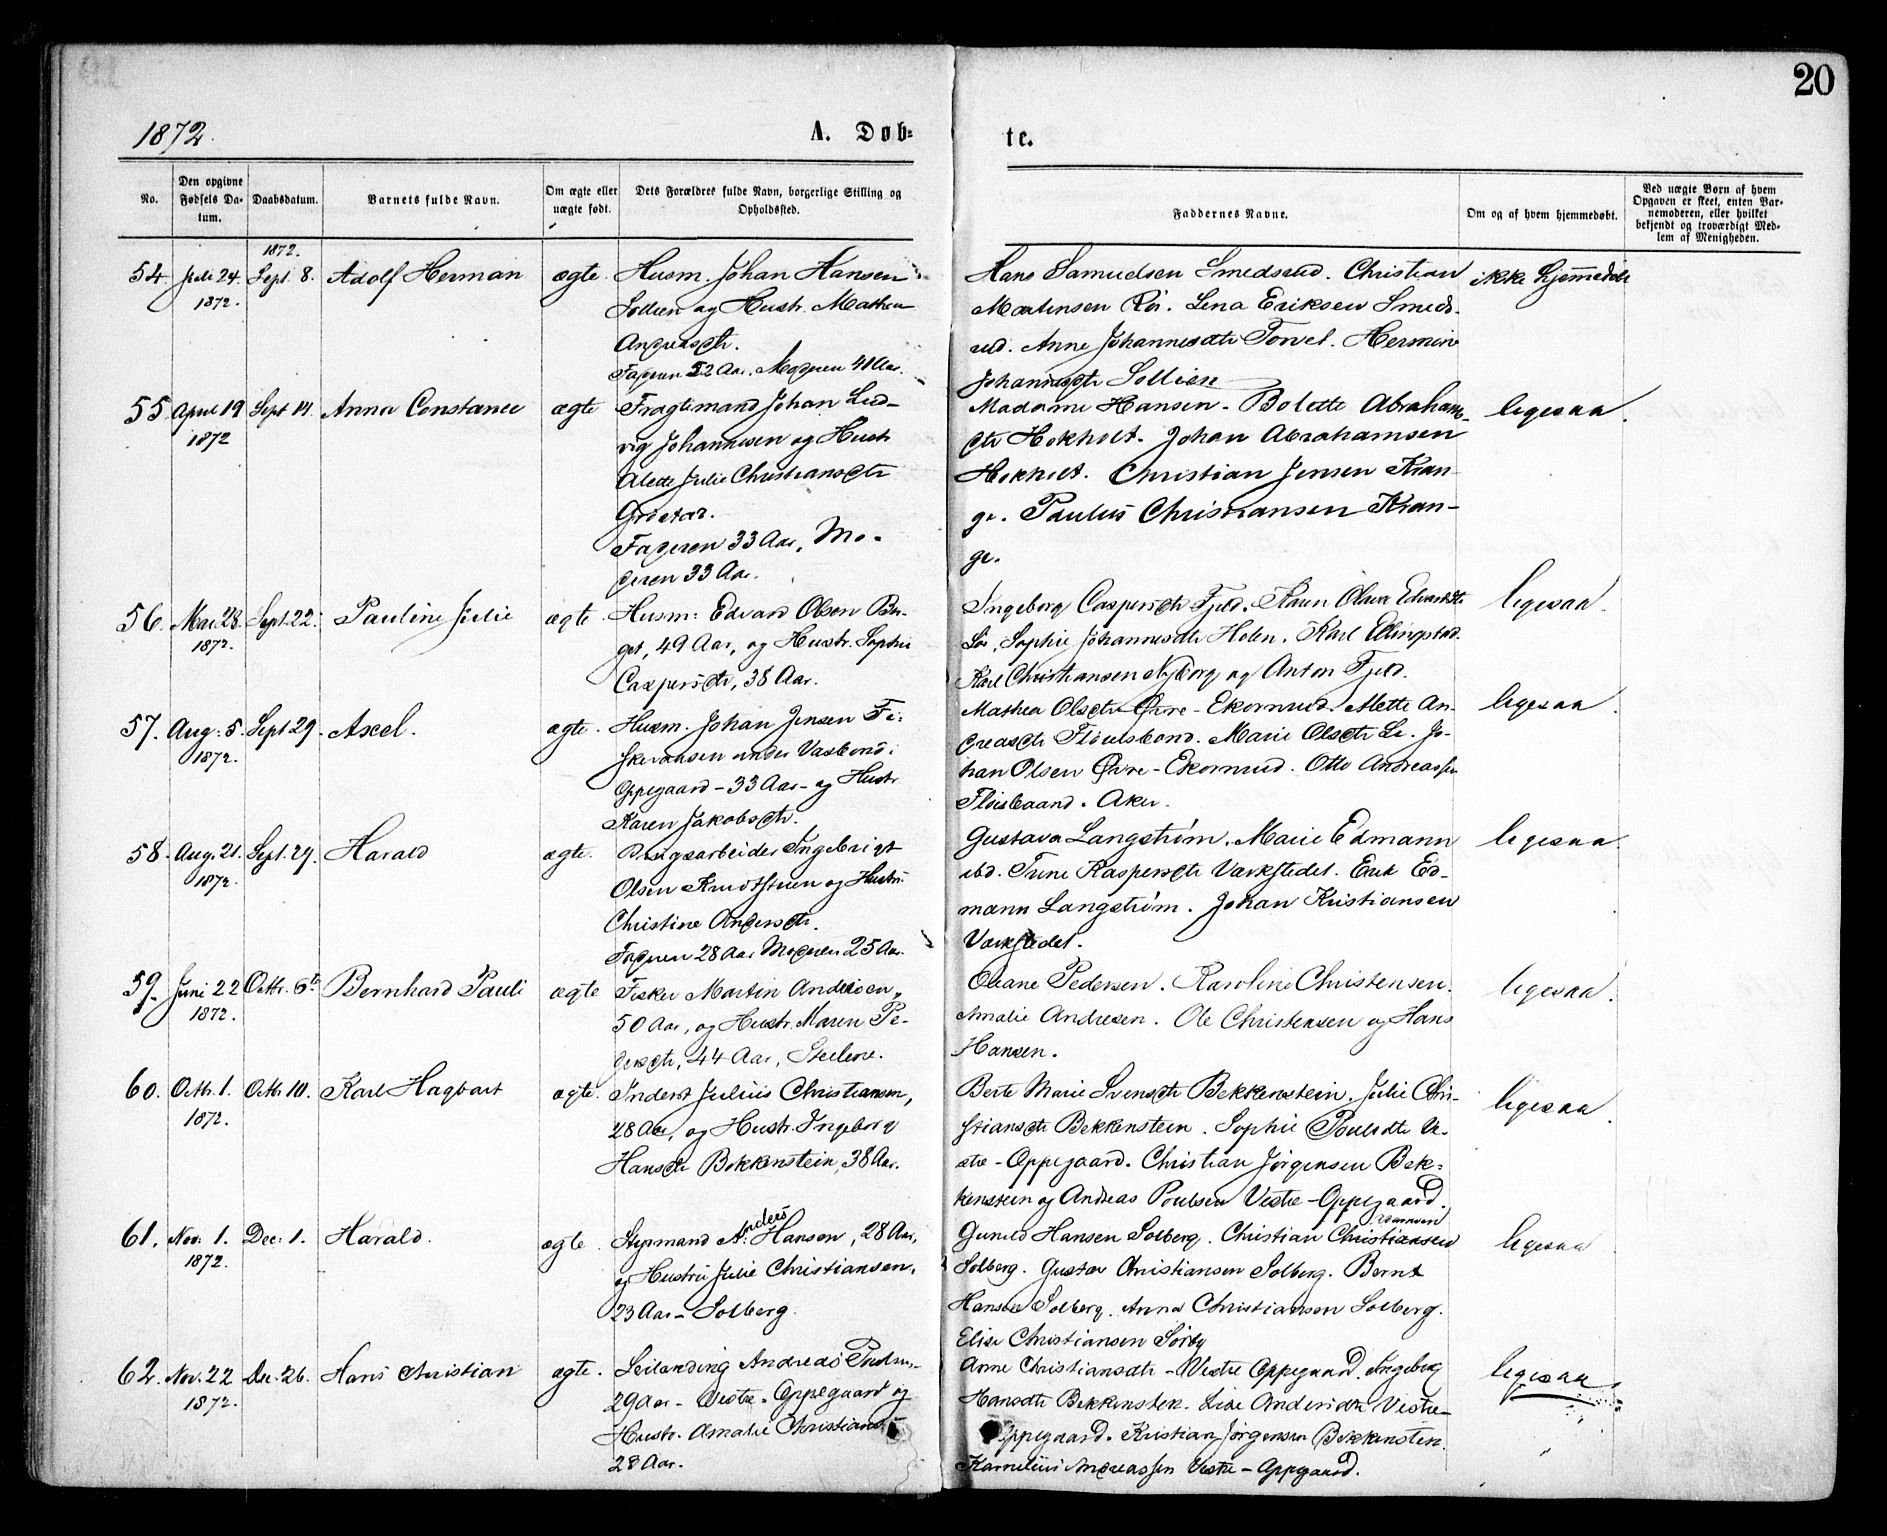 20
1872.
A. Døb-
te.
No.
Den opgivne
Fødsels Da-
tum.
Daabsdatum.
Barnets fulde Navn.
Om ægte eller
uægte født.
Dets Forældres fulde Navn, borgerlige Stilling og
Opholdssted.
Faddernes Navne.
Om og af hvem hjemmedøbt.
Ved uægte Børn af hvem
Opgaven er skeet, enten Bar-
nemoderen, eller hvilket
bekjendt og troværdigt Med-
lem af Menigheden.
54. Juli 24.
1872.
1872.
Sept. 8.
Adolf Herman
ægte.
Husm. Johan Hansen
Sollien og Hustr. Mathea
Andreasdtr.
Faderen 52 Aar. Moderen 41 Aar.
Hans Samuelsen Smedsrud. Christian
Martinsen Rör. Lena Eriksen Smeds-
rud. Anne Johannesdtr Torvet. Hermine
Johannesdtr Sollien
ikke hjemmedöbt
55. April 19
1872
Sept 14.
Anna Constance
ægte
Fragtemand Johan Lud-
vig Johannesen og Hustr
Alette Julie Christiansdtr
Gröstad.
Faderen 33 Aar, Mo-
deren 33 Aar.
Madame Hansen. Bolette Abrahams-
dtr Hokholt. Johan Abrahamsen
Hokholt. Christian Jensen Kran-
ge. Paulus Christiansen Kran-
ge.
ligesaa.
56. Mai. 28.
1872.
Sept. 22.
Pauline Julie
ægte.
Husm: Edvard Olsen Ber-
get, 49 Aar, og Hustr. Sophie
Caspersdtr, 38 Aar.
Ingeborg Caspersdtr Fjeld. Karen Olava Edvardsdtr
Lös, Sophie Johannesdtr Holen. Karl Ellingstad.
Karl Christiansen Nyborg og Anton Fjeld.
ligesaa.
57. Aug. 5.
1872.
Sept 29.
Axel.
ægte.
Husm. Johan Jensen Fi-
skeraasen under Vasbond.
Oppegaard - 33 Aar - og Hustr
Karen Jakobsdtr.
Mathea Olsdtr Övre-Ekornrud. Mette An-
dreasdtr Flöisbond. Marie Olsdtr Li. Jo-
han Olsen Övre-Ekornrud. Otto Andreassen
Flöisbaand. Aker.
ligesaa.
58. Aug. 21.
1872.
Sept. 29.
Harald
ægte.
Brugsarbeider Ingebrigt
Olsen Knudtstuen og Hustr.
Christine Andersdtr.
Faderen 28 Aar Moderen 25 Aar.
Gustava Langström. Marie Edmann
ibd. Trine Kaspersdtr Værkstedet. Erik Ed-
mann Langström. Johan Kristiansen
Værkstedet.
ligesaa.
59. Juni 22
1872.
Octbr. 6te
Bernhard Pauli
ægte
Fisker Martin Andersen,
50 Aar, og Hustr. Maren Pe-
dersdtr, 44 Aar, Steilene.
Oliane Pedersen. Karoline Christensen.
Amalie Andresen. Ole Christensen og Hans
Hansen.
ligesaa.
60. Octbr. 1.
1872.
Octbr 10.
Karl Hagbart
ægte.
Inderst Julius Christiansen,
28 Aar, og Hustr. Ingeborg
Hansdtr Bekkenstein, 38 Aar.
Berte Marie Svensdtr Bekkenstein. Julie Chri-
stiansdtr Bekkenstein. Sophie Poulsdtr Ve-
stre-Oppegaard. Christian Jörgensen Bek-
kenstein og Andreas Poulsen Vestre-Oppegaard.
ligesaa.
61. Nov. 1.
1872.
Dec. 1.
Harald.
ægte.
Anders
Styrmand A. Hansen, 28 Aar,
og Hustru Julie Christiansen,
23 Aar - Solberg.
Gunild Hansen Solberg. Christian Christiansen
Solberg. Gustav Christiansen Solberg. Bernt
Hansen Solberg. Anna Christiansen Solberg.
Elise Christiansen Sörby
ligesaa
62. Nov. 22
1872.
Dec. 26.
Hans Christian
ægte.
Leilænding Andreas
29 Aar - Vestre-Oppegaard og
Hustr. Amalie
28 Aar.
Anne Christiansdtr - Vestre Oppegaard. Ingeborg
Hansdtr Bekkensten. Lise Andersdtr Vestre-
Oppegaard. Kristian Jörgensen Bekkensten.
Kornelius Andreassen Vestre-Oppegaard.
ligesaa.